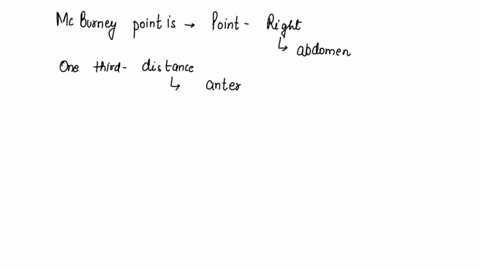 Mc Burney point is → Point - Right
↳ abdomen
One third - distance
↳ anter